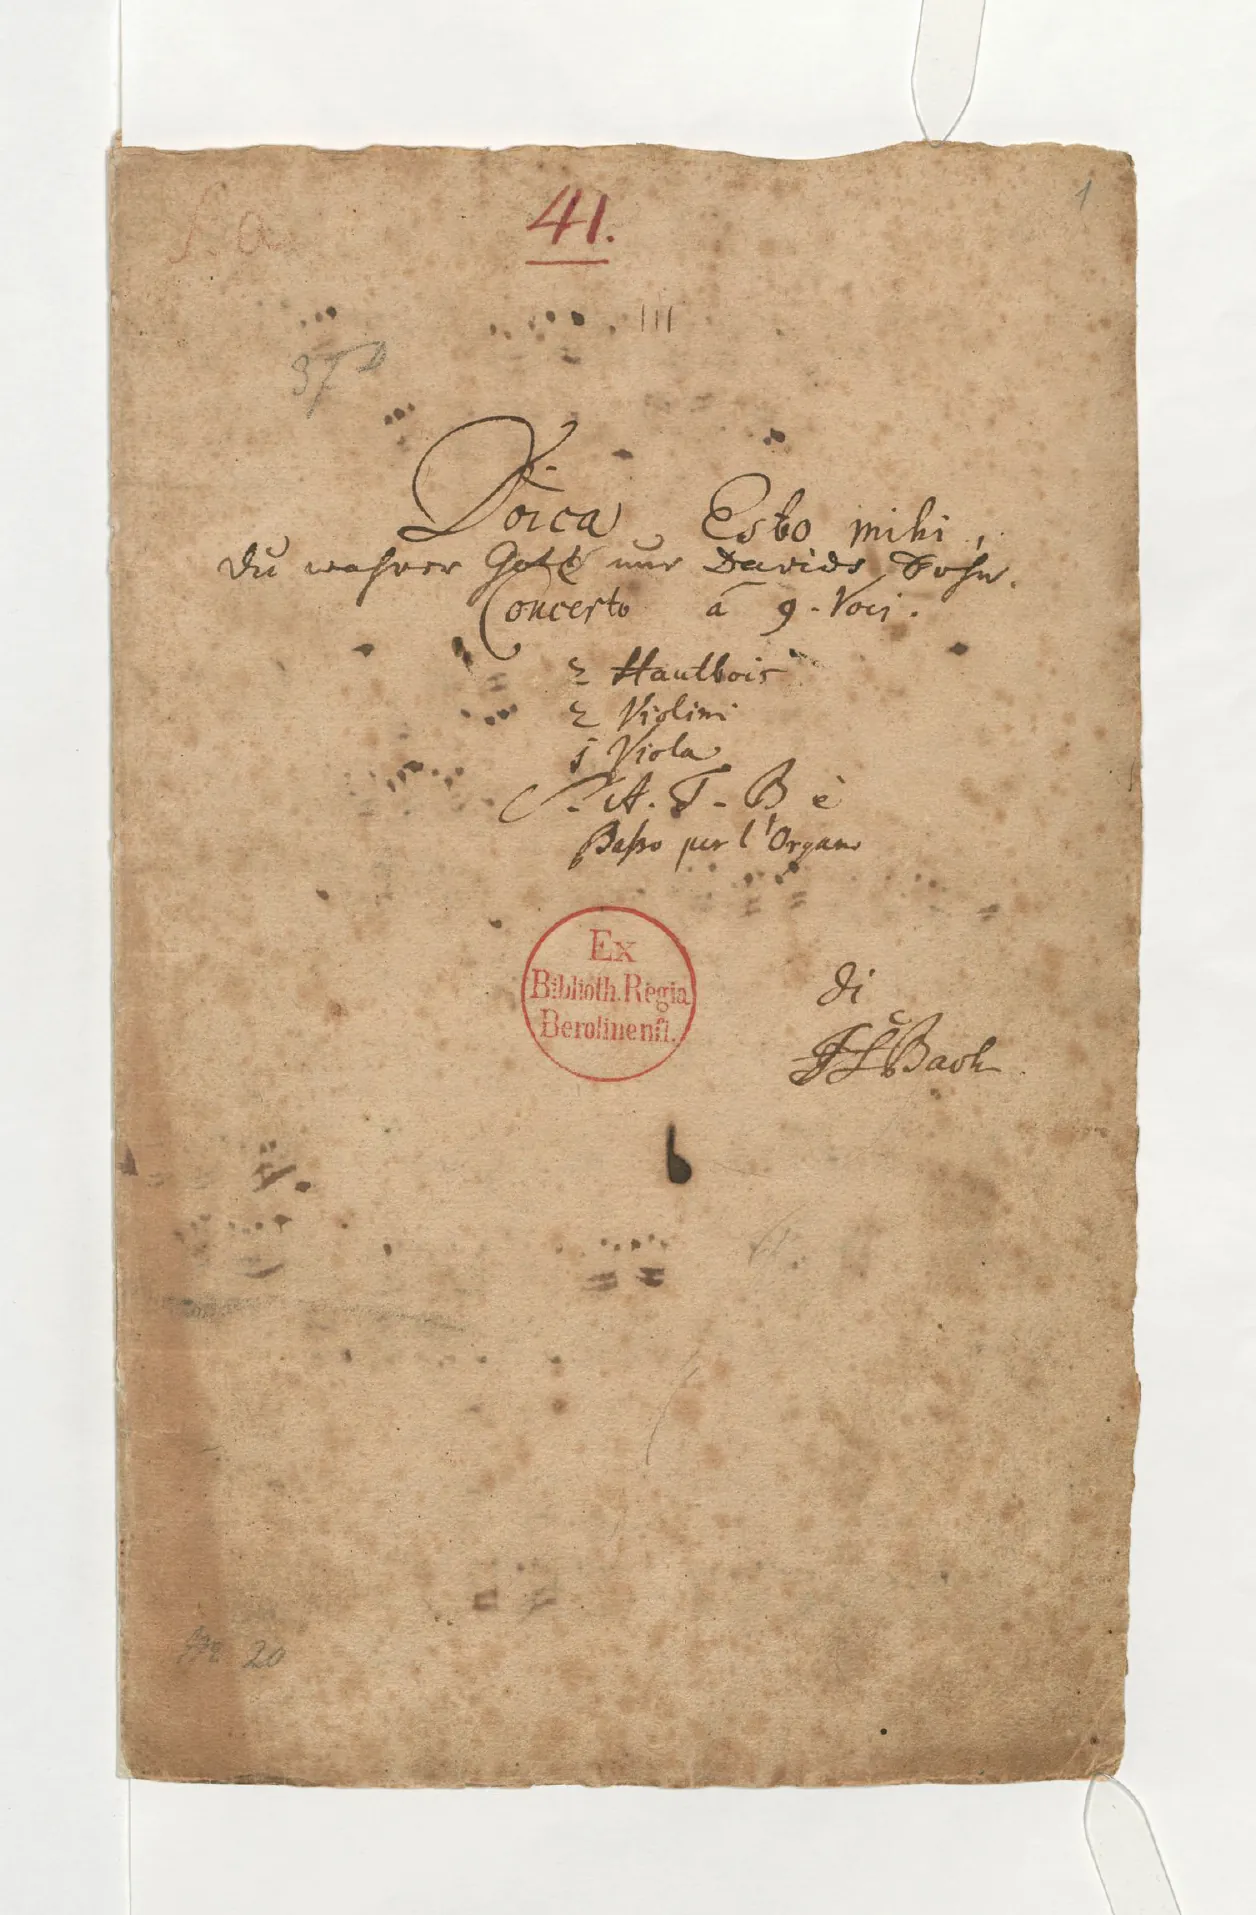 41.
1
III
37
Doĩca Esto mihi,
du wahrer Gott nur Davids Sohn.
Concerto à 9. Voci.
2 Hautbois
2 Violini
j Viola
S. A. T. B è
Baßo per l'Organo
Ex
Biblioth. Regia
Berolinenſi.
di
JSBach
20